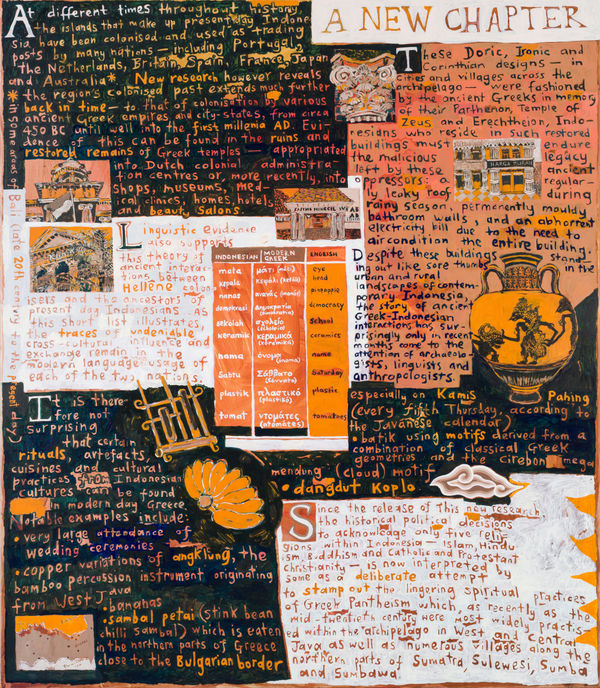 A NEW CHAPTER
At different times throughout history
the islands that make up present day Indone-
sia have been colonised and used as trading
posts by many nations — including Portugal,
the Netherlands, Britain, Spain, France, Japan
and Australia*. New research however reveals
the region's colonised past extends much further
back in time — to that of colonisation by various
ancient Greek empires and city-states, from circa
450 BC until well into the first millenia AD. Evi-
dence of this can be found in the ruins and
restored remains of Greek temples — appropriated
into Dutch colonial administra-
tion centres or, more recently, into
shops, museums, med-
ical clinics, homes, hotels
and beauty salons.
* in some areas of Bali (late 20th century to the present day)
These Doric, Ironic and
Corinthian designs — in
cities and villages across the
archipelago — were fashioned
by the ancient Greeks in memory
of their Parthenon, Temple of
Zeus and Erechtheion, Indo-
nesians who reside in such restored
buildings must endure
the malicious legacy
left by these ancient
oppressors: regular-
ly leaky roofs during
rainy season, permenently mouldy
bathroom walls, and an abhorrent
electricity bill due to the need to
aircondition the entire building.
Linguistic evidence
also supports
this theory of
ancient interac-
tions between
Hellene colon-
isers and the ancestors of
present day Indonesians. As
this short list illustrates,
the traces of undeniable
cross-cultural influence and
exchange remain in the
modern language usage of
each of the two nations.
INDONESIAN MODERN GREEK ENGLISH
mata μάτι (máti) eye
kepala κεφάλι (kefáli) head
nanas ανανάς (ananás) pineapple
demokrasi δημοκρατία (dimokratía) democracy
sekolah σχολείο (scholeío) school
keramik κεραμικά (keramiká) ceramics
nama όνομα (ónoma) name
Sabtu Σάββατο (Sávvato) Saturday
plastik πλαστικό (plastikó) plastic
tomat ντομάτες (ntomátes) tomatoes
Despite these buildings stand-
ing out like sore thumbs in the
urban and rural
landscapes of contem-
porary Indonesia,
the story of ancient
Greek-Indonesian
interactions has sur-
prisingly only in recent
months come to the
attention of archaeolo-
gists, linguists and
anthropologists.
It is there-
fore not
surprising
that certain
rituals, artefacts,
cuisines and cultural
practices from Indonesian
cultures can be found
in modern day Greece.
Notable examples include:
• very large attendance of
wedding ceremonies
• copper variations of angklung, the
bamboo percussion instrument originating
from West Java
• bananas
• sambal petai (stink bean
chilli sambal) which is eaten
in the northern parts of Greece
close to the Bulgarian border
especially on Kamis Pahing
(every fifth Thursday, according to
the Javanese calendar)
• batik using motifs derived from a
combination of classical Greek
geometries and the Cirebon mega
mendung (cloud) motif
• dangdut koplo
Since the release of this new research,
the historical political decisions
to acknowledge only five reli-
gions within Indonesia — Islam, Hindu-
ism, Buddhism and Catholic and Protestant
Christianity — is now interpreted by
some as a deliberate attempt
to stamp out the lingering spiritual practices
of Greek Pantheism which, as recently as the
mid-twentieth century were most widely practis-
ed within the archipelago in West and Central
Java as well as numerous villages along the
northern parts of Sumatra, Sulewesi, Sumba
and Sumbawa.